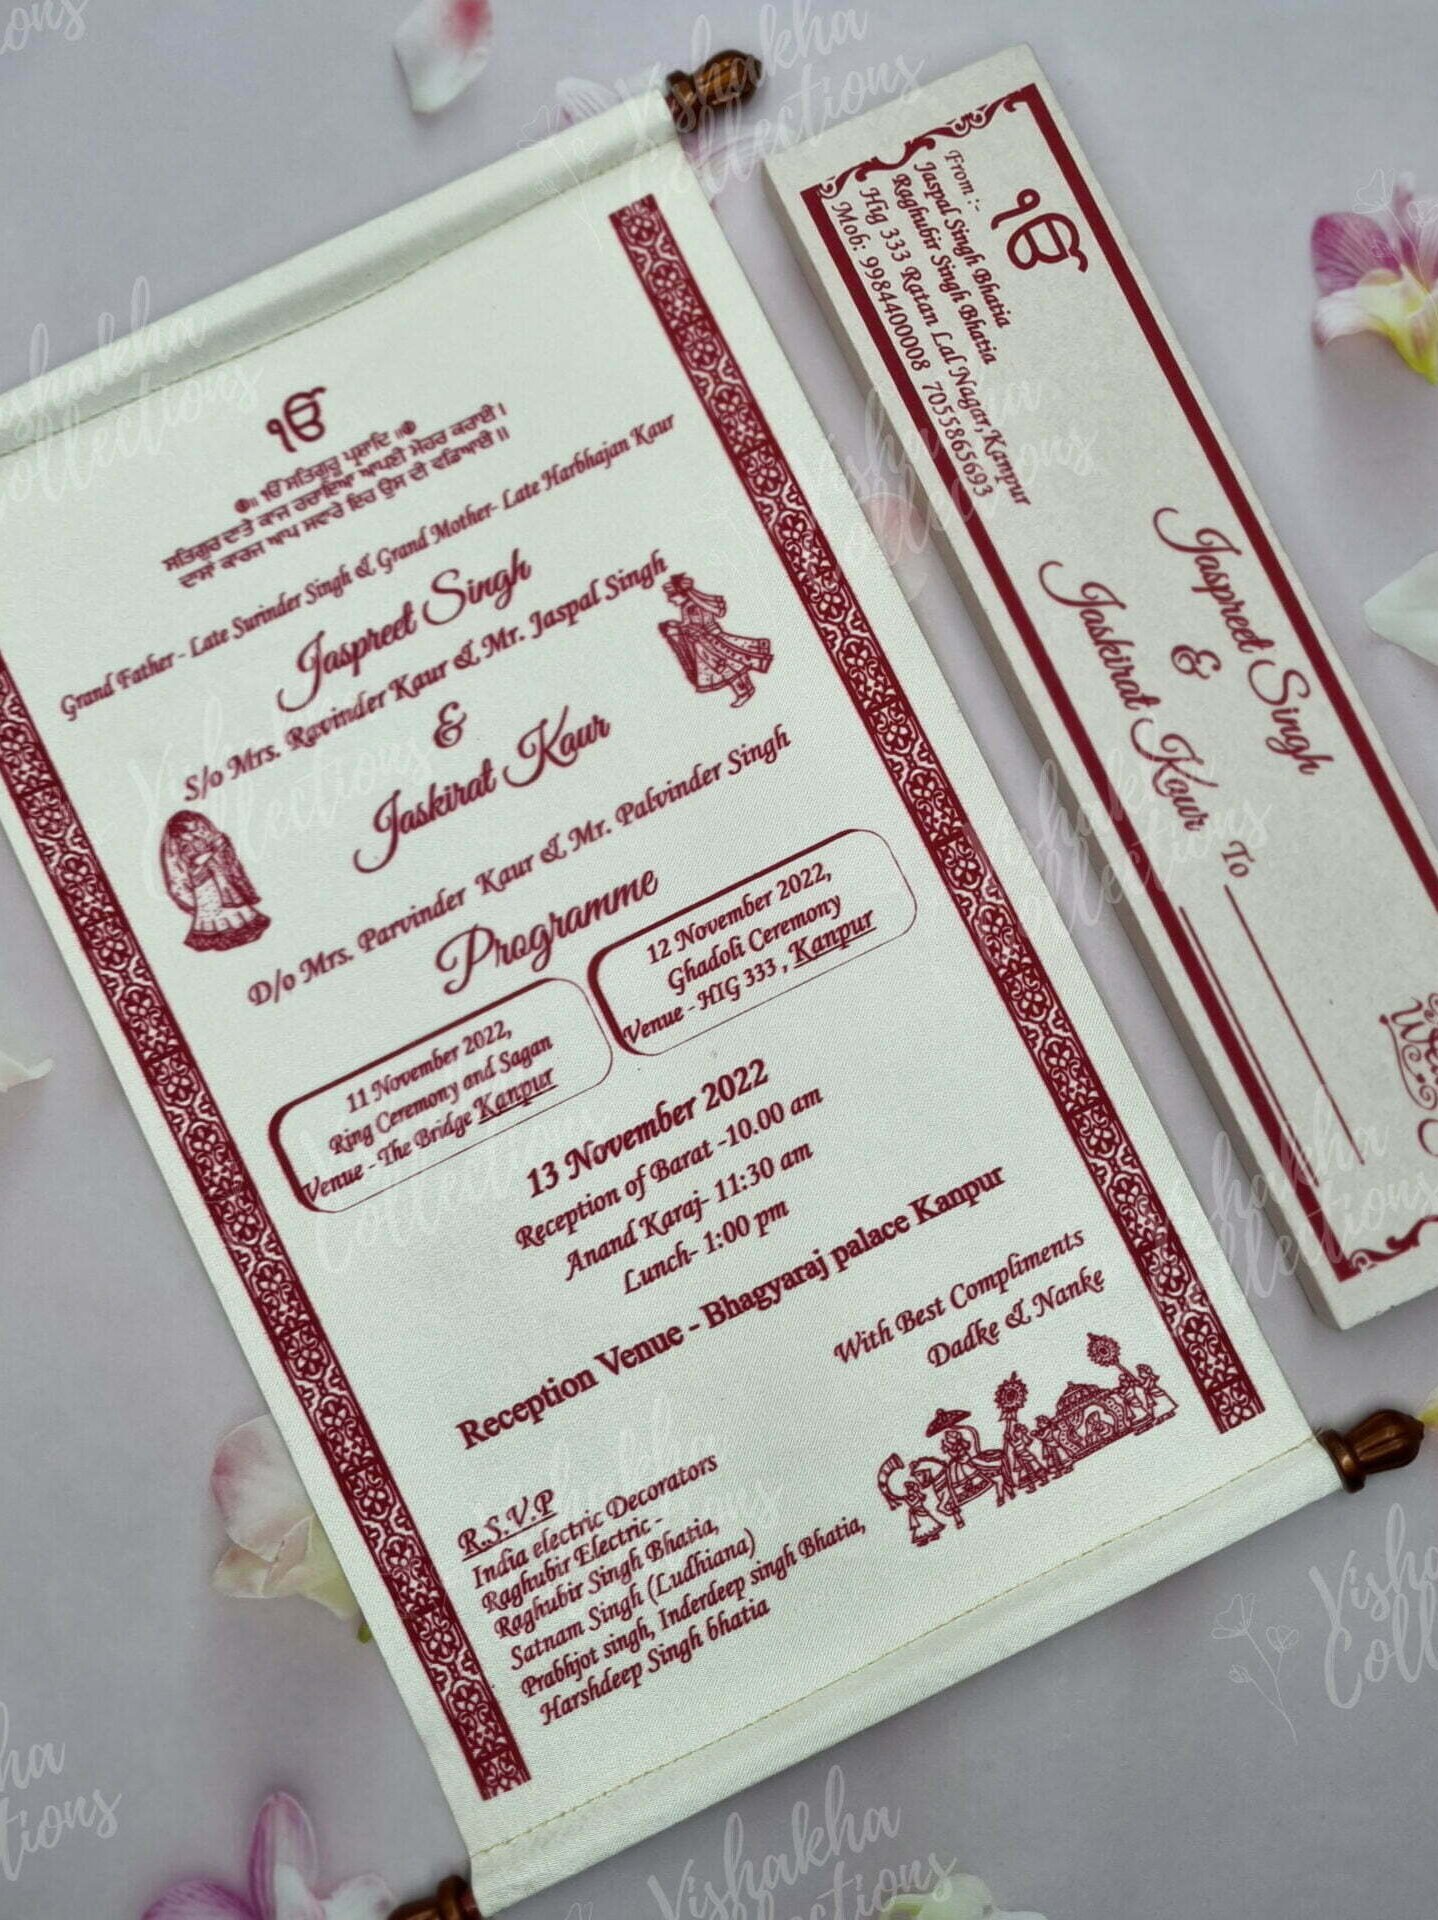 ੴ
ੴ॥ ੴ ਸਤਿਗੁਰੂ ਪ੍ਰਸਾਦਿ ॥ੴ
ਸਤਿਗੁਰ ਦਾਤੇ ਕਾਜ ਰਚਾਇਆ ਆਪਣੀ ਮੇਹਰ ਕਰਾਈ ।
ਦਾਸਾਂ ਕਾਰਜ ਆਪ ਸਵਾਰੇ ਇਹ ਉਸ ਦੀ ਵਡਿਆਈ ॥
Grand Father - Late Surinder Singh & Grand Mother- Late Harbhajan Kaur
Jaspreet Singh
S/o Mrs. Ravinder Kaur & Mr. Jaspal Singh
&
Jaskirat Kaur
D/o Mrs. Parvinder Kaur & Mr. Palvinder Singh
Programme
11 November 2022,
Ring Ceremony and Sagan
Venue - The Bridge Kanpur
12 November 2022,
Ghadoli Ceremony
Venue - HIG 333 , Kanpur
13 November 2022
Reception of Barat -10.00 am
Anand Karaj- 11:30 am
Lunch- 1:00 pm
Reception Venue - Bhagyaraj palace Kanpur
With Best Compliments
Dadke & Nanke
R.S.V.P
India electric Decorators
Raghubir Electric -
Raghubir Singh Bhatia,
Satnam Singh (Ludhiana)
Prabhjot singh, Inderdeep singh Bhatia,
Harshdeep Singh bhatia
ੴ
From :-
Jaspal Singh Bhatia
Raghubir Singh Bhatia
Hig 333 Ratan Lal Nagar,Kanpur
Mob: 9984400008 7055865693
Jaspreet Singh
&
Jaskirat Kaur
To
Vishakha
Collections